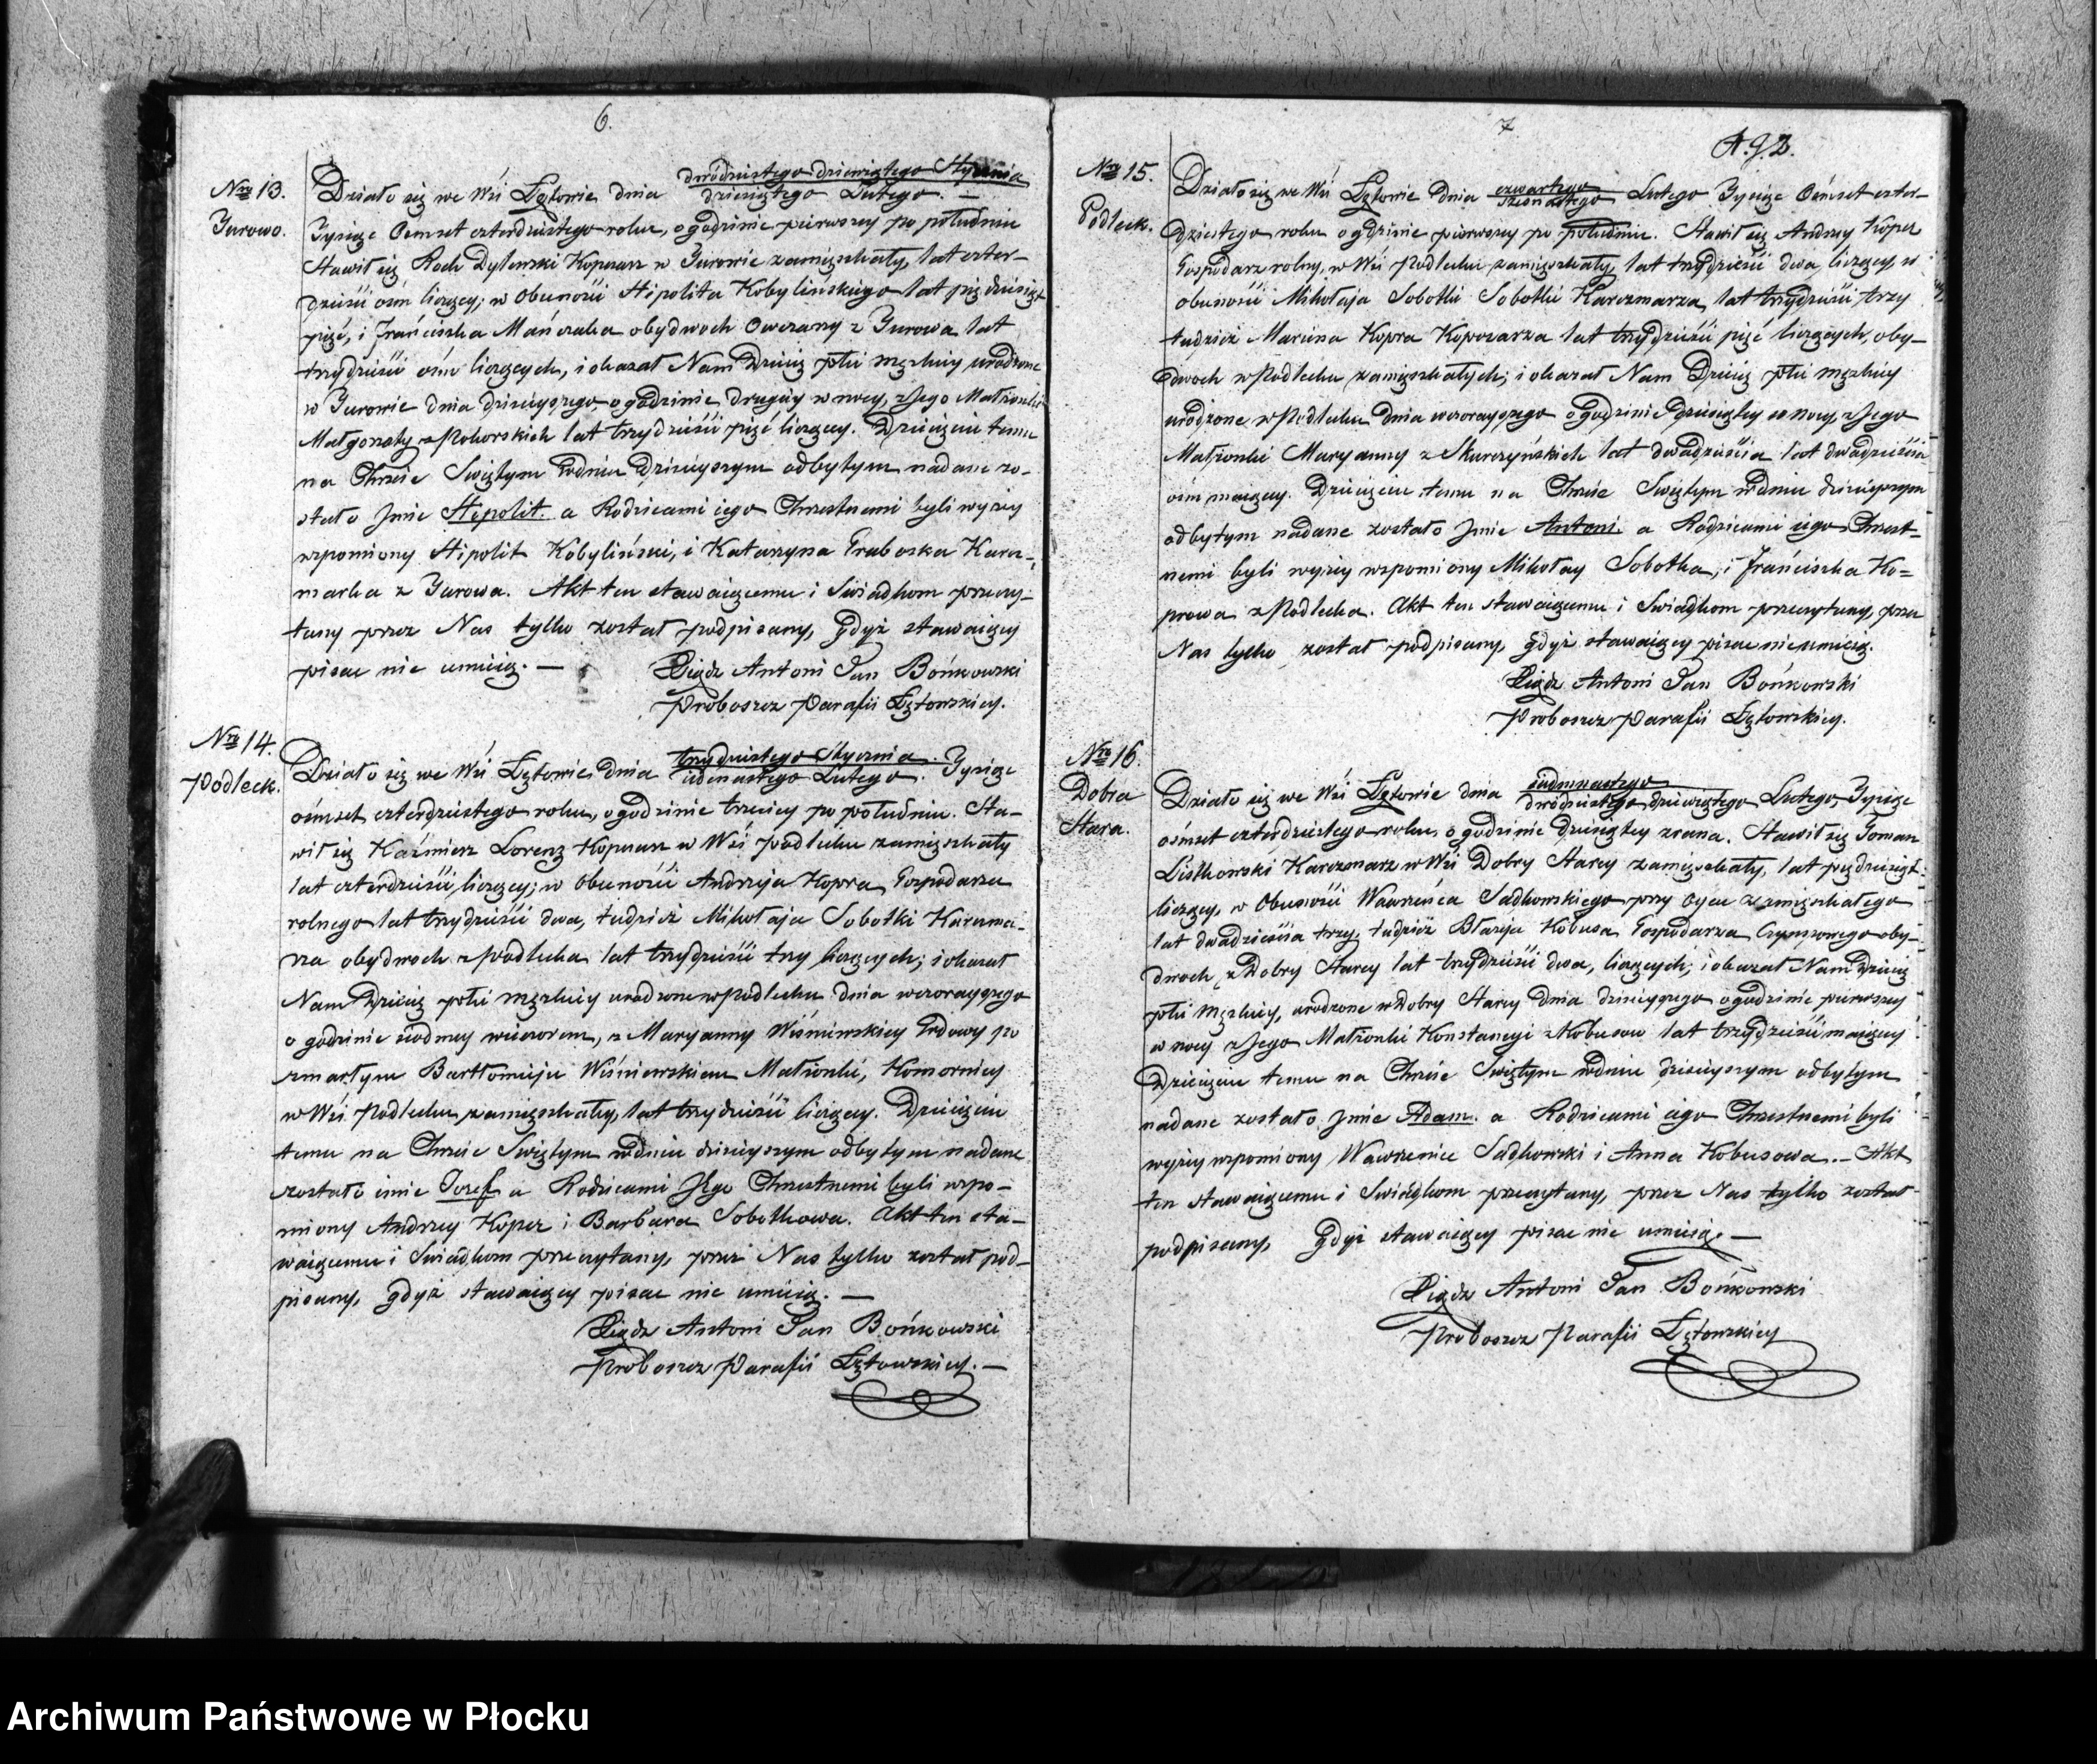 6.
Nro 13.
Jurowo.
Działo się we Wsi Łętowie dnia dwódziestego dziewiątego Stycznia
dziesiątego Lutego. —
Tysiąc Ośmset czterdziestego roku, o godzinie pierwszey po południu
Stawił się Roch Dylewski Kopciarz w Jurowie zamięszkały, lat czter-
dzieści ośm liczący; w Obecności Hipolita Kobylińskiego lat pięćdziesiąt
pięć, i Franciszka Mańczaka obydwoch Owczarzy z Jurowa lat
trzydzieści ośm liczących, i okazał Nam Dziecię płci męzkiey urodzone
w Jurowie dnia dzisieyszego, o godzinie drugiey w nocy, z Jego Małżonki
Małgorzaty z Rohorskich lat trzydzieści pięć liczącey. Dziecięciu temu
na Chrzcie Swiętym w dniu dzisieyszym odbytym nadane zo-
stało Jmie Hipolit. a Rodzicami iego Chrzestnemi byli wyżey
wspomniony Hipolit Kobyliński, i Katarzyna Graboska Karcz-
marka z Jurowa. Akt ten stawaiącemu i Swiadkom przeczy-
tany przez Nas tylko został podpisany, Gdyż stawaiący
pisać nie umieią. —
Xiądz Antoni Jan Bońkowski
Proboszcz Parafii Łętowskiey.
Nro 14.
Podleck.
Działo się we Wsi Łętowie dnia trzydziestego Stycznia Tysiąc
iedenastego Lutego.
ośmset czterdziestego roku, o godzinie trzeciey po południu. Sta-
wił się Kaźmierz Lorenz Kopciarz w Wsi Podlecku zamięszkały
lat czterdzieści, liczący; w Obecności Andrzeja Kopra, Gospodarza
rolnego lat trzydzieści dwa, tudzież Mikołaja Sobotki Karczma-
rza obydwoch z Podlecka lat trzydzieści trzy liczących; i okazał
Nam Dziecię płci męzkiey urodzone w Podlecku dnia wczorayszego
o godzinie siódmey wieczorem, z Maryanny Wiśniewskiey Wdowy po
zmarłym Bartłomieju Wiśniewskiem Małżonki, Komornicy
w Wsi Podlecku zamięszkałey, lat trzydzieści liczącey. Dziecięciu
temu na Chrzcie Swiętym w dniu dzisieyszym odbytym nadane
zostało imie Jozef a Rodzicami Jego Chrzestnemi byli wspo-
mniony Andrzey Koper i Barbara Sobotkowa. Akt ten sta-
waiącemu i Swiadkom przeczytany, przez Nas tylko został pod-
pisany, gdyż stawaiący pisać nie umieią. —
Xiądz Antoni Jan Bońkowski
Proboszcz Parafii Łętowskiey. —
7
A.J.B.
Nro 15.
Podleck.
Działo się we Wsi Łętowie Dnia czwartego Lutego Tysiąc Ośmset czter-
szesnastego
dziestego roku o godzinie pierwszey po południu. Stawił się Andrzey Koper
Gospodarz rolny, w Wsi Podlecku zamięszkały, lat trzydzieści dwa, liczący w
obecności Mikołaja Sobotki Sobotki Karczmarza, lat trzydzieści, trzy
tudzież Marcina Kopra Kopczarza lat trzydzieści pięć liczących, oby-
dwoch w Podlecku zamięszkałych; i okazał Nam Dziecię płci męzkiey
urodzone w Podlecku dnia wczorayszego o godzinie dziesiątey w nocy, z Jego
Małżonki Maryanny z Skurczyńskich lat dwadzieścia lat dwadzieścia
ośm maiącey. Dziecięciu temu na Chrzcie Swiętym w dniu dzisieyszym
odbytym nadane zostało Jmie Antoni. a Rodzicami iego Chrzest-
nemi byli wyżey wspomniony Mikołay Sobotka, i Franciszka Ko-
prowa z Podlecka. Akt ten stawaiącemu i Swiadkom przeczytany, przez
Nas tylko został podpisany, gdyż stawaiący pisać nie umieią.
Xiądz Antoni Jan Bońkowski
Proboszcz Parafii Łętowskiey.
Nro 16.
Dobra
Stara.
Działo się we Wsi Łętowie dnia siedmnastego
dwódziestego dziewiątego Lutego, Tysiąc
ośmset czterdziestego roku, o godzinie dziesiątey zrana. Stawił się Toman
Listkowski Karczmarz w Wsi Dobry Starey zamięszkały, lat pięćdziesiąt
liczący, w Obecności Wawrzeńca Sadkowskiego przy Oycu zamięszkałego
lat dwadzieścia trzy, tudzież Błażeja Kobusa Gospodarza Czynszowego oby-
dwoch z Dobry Starey lat trzydzieści dwa, liczących; i okazał Nam Dziecię
płci męzkiey, urodzone w Dobry Starey dnia dzisieyszego o godzinie pierwszey
w nocy z Jego Małżonki Konstancyi z Kobusow lat trzydzieści maiącey
Dziecięciu temu na Chrzcie Swiętym w dniu dzisieyszym odbytym
nadane zostało Jmie Adam. a Rodzicami iego Chrzestnemi byli
wyżey wspomniony Wawrzeniec Sadkowski i Anna Kobusowa. — Akt
ten stawaiącemu i Swiadkom przeczytany, przez Nas tylko został
podpisany, Gdyż stawaiący pisać nie umieią. —
Xiądz Antoni Jan Bońkowski
Proboszcz Parafii Łętowskiey
Archiwum Państwowe w Płocku